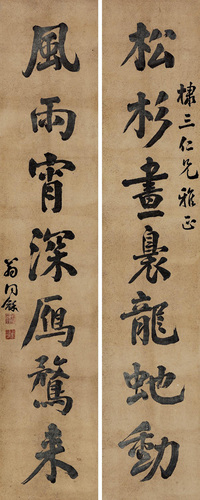 棣三仁兄雅正
松杉晝裊龍虵動
風雨宵深鴈鶩来
翁同龢